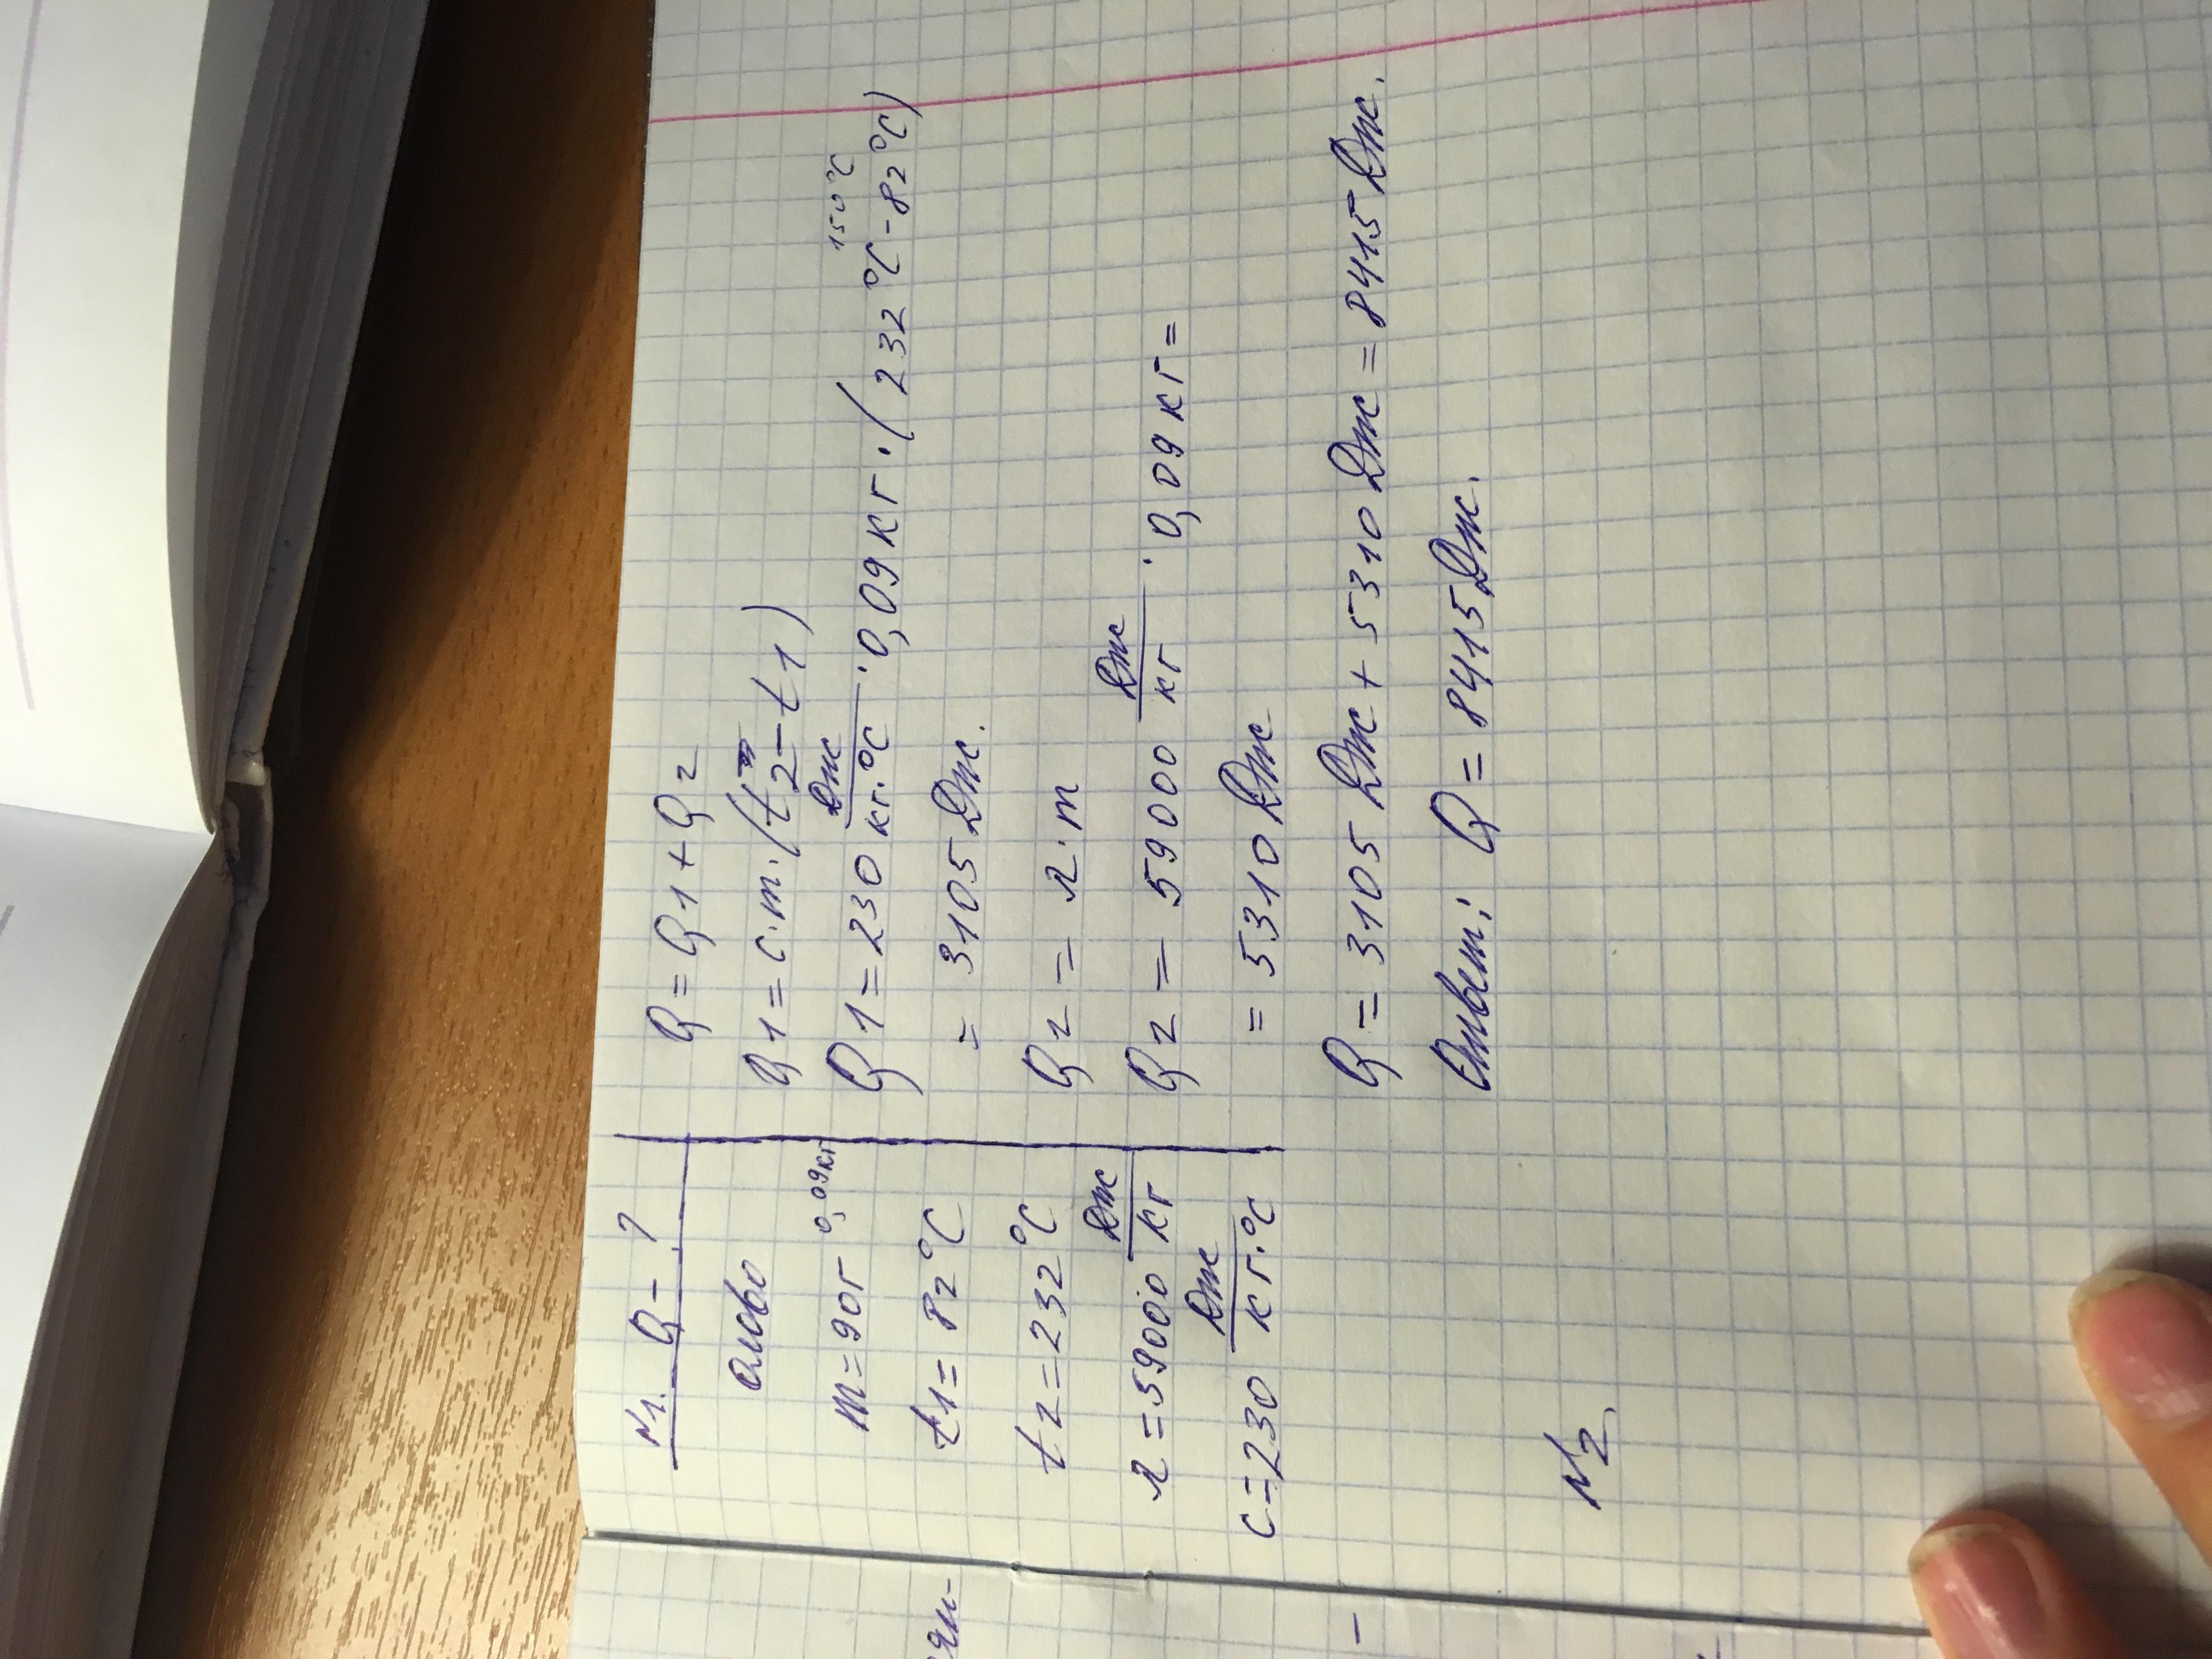 N1. Q - ?
олово
m = 90г 0,09кг
t1 = 82 °C
t2 = 232 °C
λ = 59000 Дж/кг
c = 230 Дж/кг·°C
Q = Q1 + Q2
Q1 = c · m · (t2 - t1)
Q1 = 230 Дж/кг·°C · 0,09 кг · (232 °C - 82 °C) 150 °C
= 3105 Дж.
Q2 = λ · m
Q2 = 59000 Дж/кг · 0,09 кг =
= 5310 Дж
Q = 3105 Дж + 5310 Дж = 8415 Дж.
Ответ: Q = 8415 Дж.
N2.